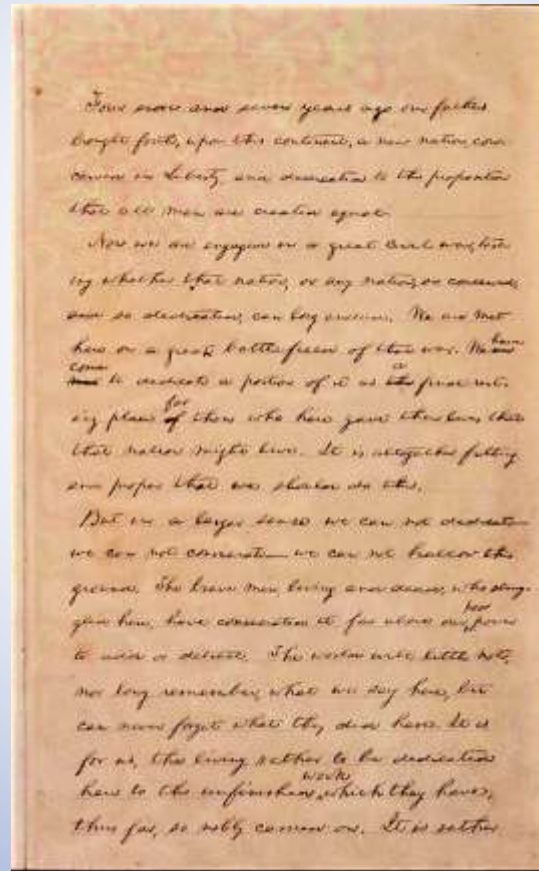 Four score and seven years ago our fathers
brought forth, upon this continent, a new nation, con-
ceived in Liberty, and dedicated to the proposition
that all men are created equal.
Now we are engaged in a great civil war, test-
ing whether that nation, or any nation, so conceived,
and so dedicated, can long endure. We are met
here on a great battle-field of that war. We are have
come
met to dedicate a portion of it as the a final rest-
for
ing place of those who here gave their lives that
that nation might live. It is altogether fitting
and proper that we should do this.
But in a larger sense we can not dedicate—
we can not consecrate—we can not hallow this
ground. The brave men, living and dead, who strug-
poor
gled here, have consecrated it far above our power
to add or detract. The world will little note,
nor long remember, what we say here, but
can never forget what they did here. It is
for us, the living, rather to be dedicated
work
here to the unfinished which they have,
thus far, so nobly carried on. It is rather